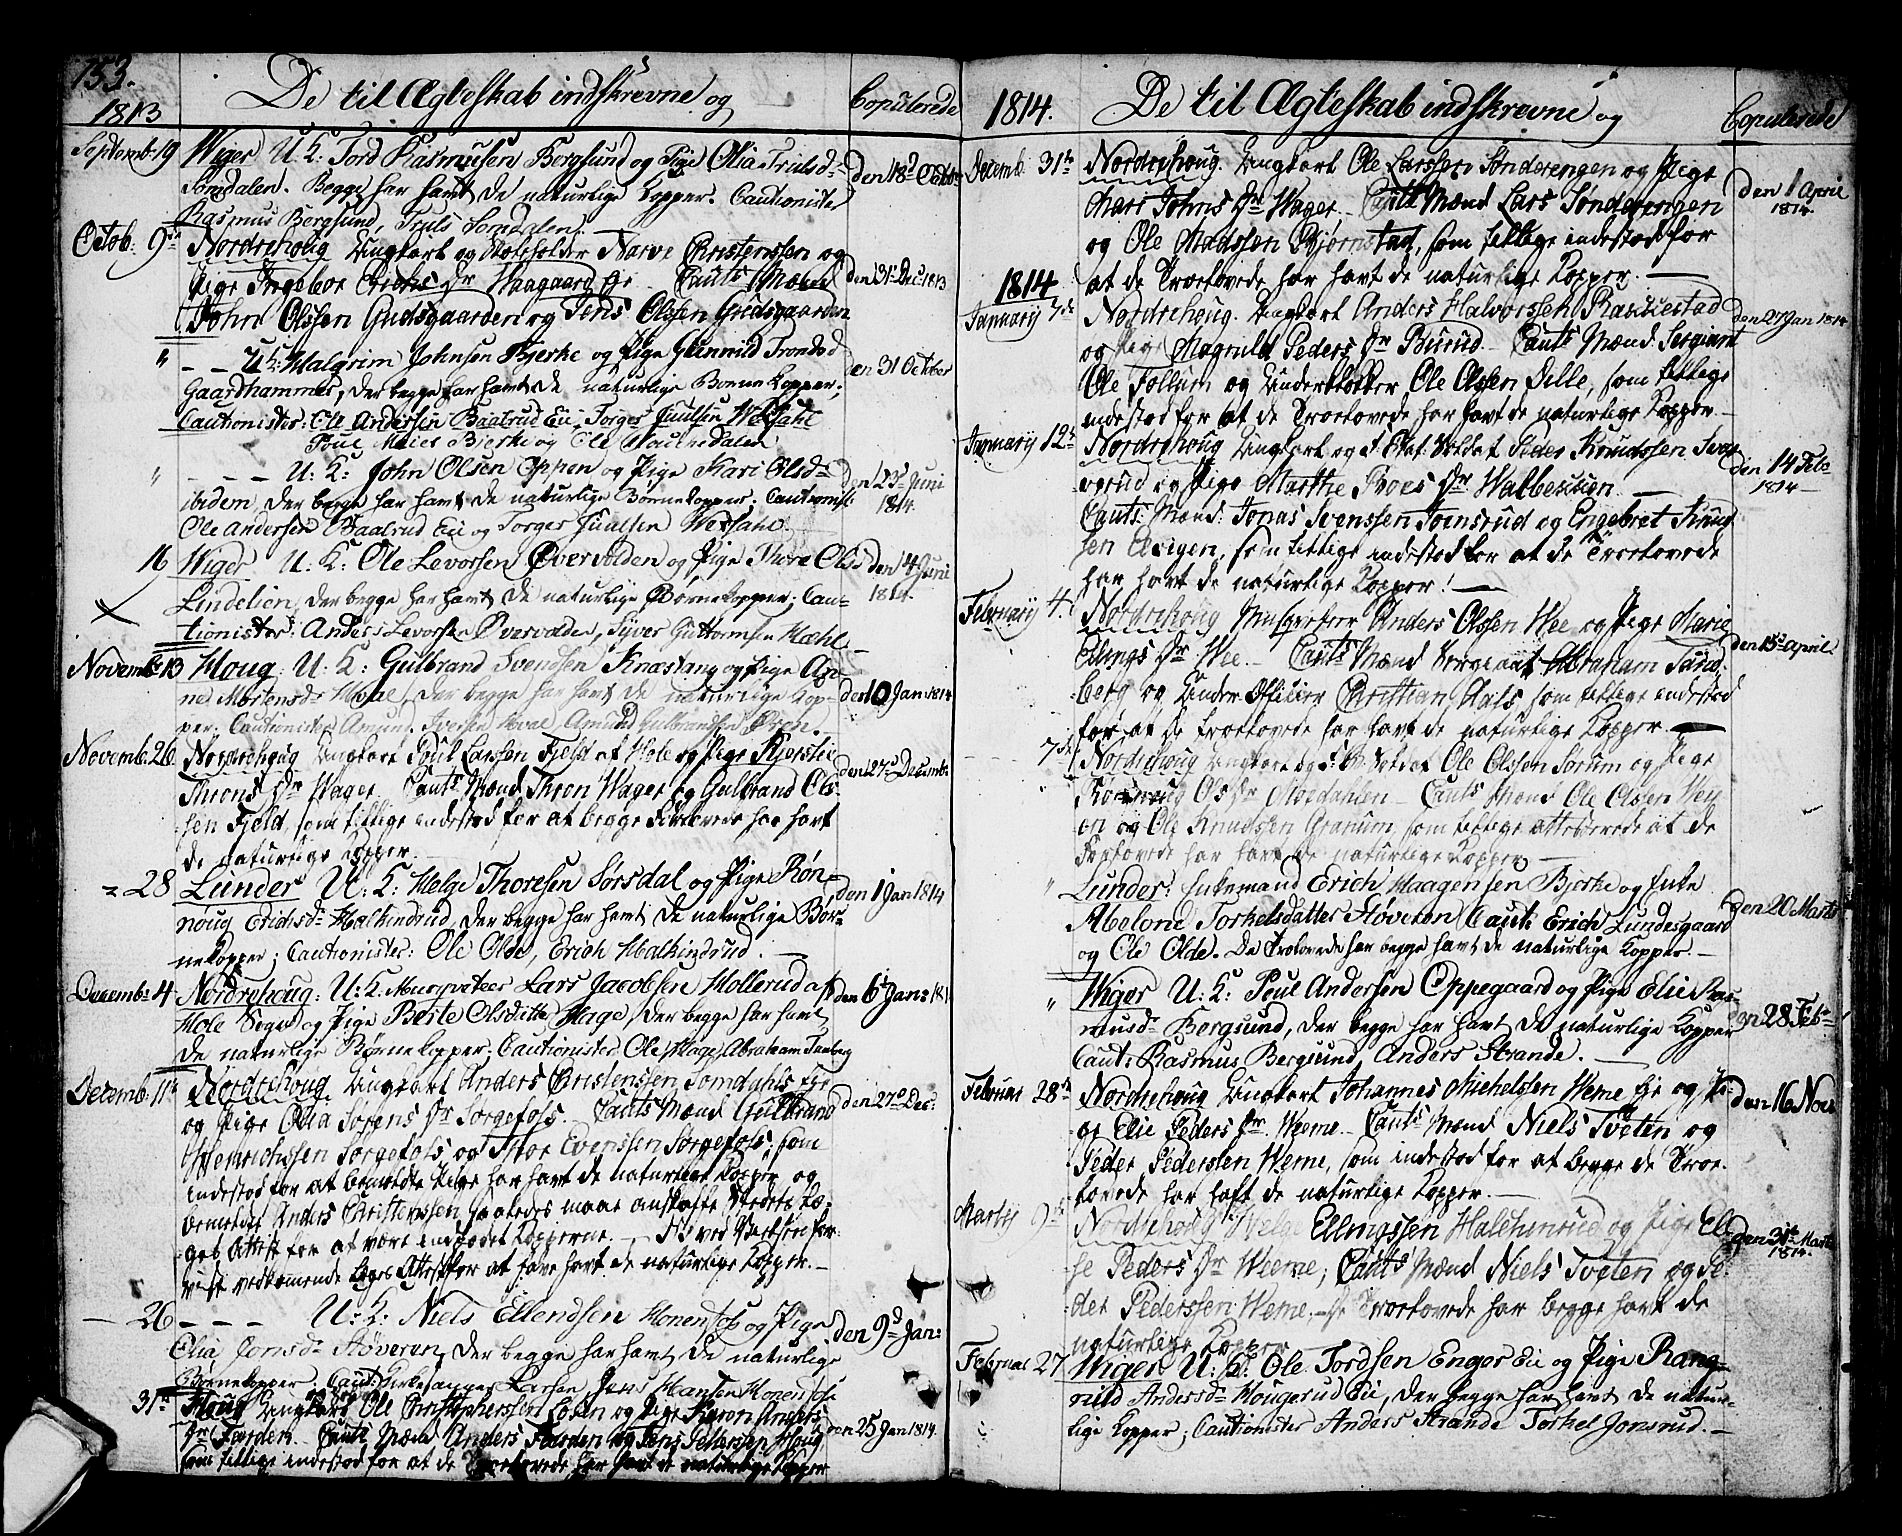 153.
1813
De til Ægteskab indskrevne og
Copulerede
Septemb. 19 Wiger U: K: Tord Rasmussen Berglund og Pige Olia Truls d:
Somdalen. Begge har hamt de naturlige Kopper. Cautionister
Rasmus Berglund, Truls Somdalen.
den 18d Octobr
Octob: 9de Nordrehoug Ungkarl og Narve Christenssen og
Pige Ingebor Dr Haagaard Eie. Cauts Mænd
John Olssen Gudsgaarden og Jens Olssen Gudsgaarden
den 31t Dec 1813
" - - U: K: Halgrim Johnsen Bjerke og Pige Gunnild Tronds d
Gaardhammer, der begge har hamt de naturlige Børne Kopper;
Cautionister: Ole Andersen Baalrud Eie, Torger Wexsahl
Poul Meier Bierke og Ole
den 31 October
" - - - U: K: John Olsen Oppen og Pige Kari Olsd:
ibidem, der begge har hamt de naturlige Børnekopper. Cautionist
Ole Andersen Baalrud Eie og Torger Wexsahl
den 23d Juni
1814.
16 Wiger U: K: Ole Levorsen Øvervolden og Pige Thore Olsd
Lindelien, der begge har hamt de naturlige Børnekopper; Cau-
tionister: Anders Levorsen Øvervolden, Syver Guttormsen Mæhl
den 4 Juni
1814.
Novemb: 13 Houg: U: K: Gulbrand Svendsen Knastang og Pige An-
ne Mortensd: Hovel, der begge har hamt de naturlige Kop-
per. Cautionister Amund Iversen Hovel Amund Gulbrandsen Øren
den 10 Jan 1814
Novemb. 26. Nordrehoug Ungkarl Poul Larssen Fjeld af Hole og Pige Kjersti
Throns Dr Wager. Cauts Mænd Thron Wager og Gulbrand Ol-
sen Fjeld, som tillige indestod for at begge har havt
de naturlige Kopper
den 27d Decemb.
- 28 Lunder U: K: Helge Thoresen Sørsdal og Pige Røn-
noug Erichsd: Halkindrud, der begge har hamt de naturlige Bør-
nekopper; Cautionister: Ole Olde, Erich Halkindrud.
den 1 Jan 1814
Decemb: 4 Nordrehoug: U: K: Lars Jacobsen Mollerud af
Hole Sogn og Pige Berte Olsdatter Hage, der begge har hamt
de naturlige Børne kopper; Cautionister Ole Hage, Abraham Tanberg
den 6 Jan:
Decemb: 11te Nordrehoug Ungkarl Anders Christenssen Somdahls Eje
og Pige Olia Sørens Dr Sørgefos. Cauts Mænd Gulbrand
Henrichssen Sørgefos og Thor Evenssen Sørgefos; som
indestod for at bemeldte Pige har havt de naturlige Kopper og
bemeldte Anders Christenssen maae anskaffe
Attest for at være indpodet Kopperne.
vist vedkomende Attest for at have havt de naturlige Kopper.
den 27d Dec:
- 26 - - - U: K: Niels Ellendsen Honenfos og Pige
Elia Jonsd: Støveren, der begge har hamt de naturlige
Børnekopper. Caut: Kirkesanger Larsen, Jens Hansen Honenfos
den 9d Jan:
31te Houg Ungkarl Ole Christophersen Losen og Pige Karen Anders
Dr Færden. Cauts Mænd Anders Færden og Jens Pettersen Houg
som tillige indestod for at de Troelovede har havt de naturlige Kopper
den 25 Jan 1814.
1814.
De til Ægteskab indskrevne og
Copulerede
Decemb. 31te Nordrehoug. Ungkarl Ole Larssen Sønderengen og Pige
Mari Johns Dr Wager. Cauts Mænd Lars Sønderengen
og Ole Madssen Bjørnstad, som tillige indestod for
at de Troelovede har havt de naturlige Kopper.
den 1 April
1814.
1814
January 7de Nordrehoug. Ungkarl Anders Halvorssen Rakkestad
og Pige Magnild Peders Dr Burud. Cauts Mænd Sergiant
Ole Follum og Underklokker Ole Olssen Lille, som tillige
indestod for at de Troelovede har havt de naturlige Kopper
den 27 Jan 1814
January 12te Nordrehoug Ungkarl og Soldat Peder Knudssen
og Pige Marthe Roes Dr Walbekiien
Cauts Mænd: Jonas Svenssen Svensrud og Engebret Knud
sen Avigen, som tillige indestod for at de Troelovede
har havt de naturlige Kopper!
den 14 Feb
1814
February 4. Nordrehoug Anders Olssen Wee og Pige Marie
Ellings Dr Wee. Cauts Mænd Sergeant Abraham Tand-
berg og Under Officier Christian Hals som tillige indestod
for at de troelovede har havt de naturlige Kopper.
den 15d April.
7de Nordrehoug Ungkarl og Soldat Ole Olssen Sørum og Pige
Rønnoug Ols Dr Modahlen. Cauts Mænd Ole Olssen
og Ole Knudssen Granum, som tillige attesterede at de
Troelovede har havt de naturlige Kopper
" Lunder: Enkemand Erich Haagensen Bjerke og Enke
Abelone Torkelsdatter Støveren Caut: Erich Lundesgaard
og Ole Olde. De Trolovede har begge havt de naturlige Kopper.
den 20 Marts
" Wiger U: K: Poul Andersen Oppegaard og Pige Elie Ras-
musd: Borgsund, der begge har hamt de naturlige Kopper
Caut: Rasmus Bergsund, Anders Strande.
den 28 Feb
Februar 28de Nordrehoug Ungkarl Johannes Michelssen Werne Eje og Pi-
ge Elie Peders Dr Weerne. Cauts Mænd Niels Tveten og
Peder Pederssen Werne, som indestod for at begge de Troe-
lovede har haft de naturlige Kopper.
den 16 Nov
Martij 9de Nordrehoug Helge Ellingssen Halchinrud og Pige El-
se Peders Dr Weerne; Cauts Mænd Niels Tveten og Pe-
der Pederssen Werne, de Troelovede har begge havt de
naturlige Kopper
den 31te Marts
1814.
Februar 27 Wiger U: K: Ole Tordsen Enger Eie og Pige Rang-
nild Andersd: Hougerud Eie, der begge har havt de natur-
lige Kopper; Cautionister Anders Strande Torkel Jonsrud.